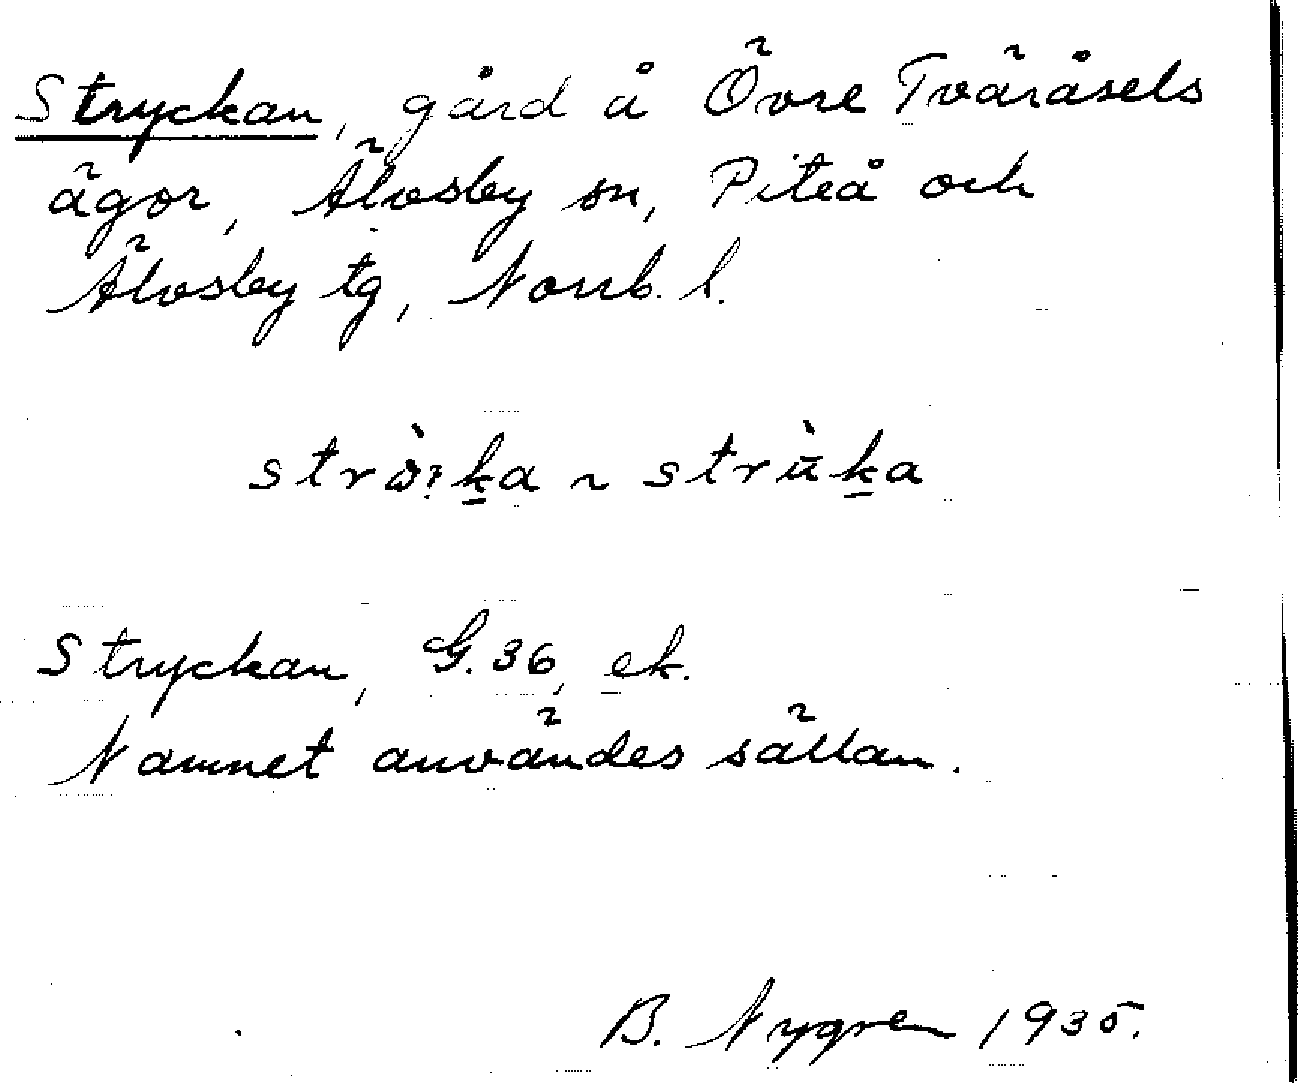 Stryckan, gård å Övre Tväråsels
ägor, Älvsby sn, Piteå och
Älvsby tg, Norrb. l.
strùka
Stryckan, G.36, ek.
Namnet användes sällan.
B. Nygren 1935.